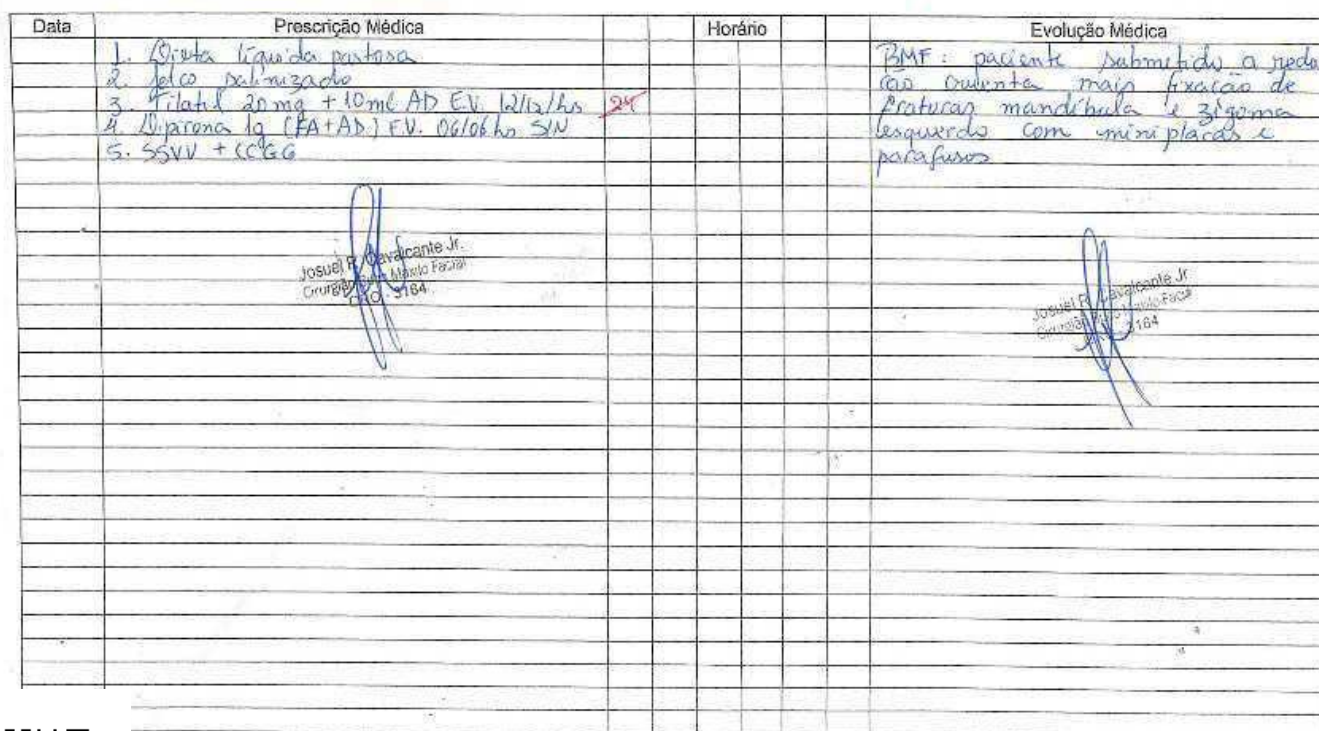 Data Prescrição Médica Horário Evolução Médica
1. Dieta líquida pastosa
2. Jelco salinizado
3. Tilatil 20mg + 10ml AD E.V. 12/12/hs 24
4. Dipirona 1g (FA+AD) E.V. 06/06 hs S/N
5. SSVV + CCGG
Josuel R. Cavalcante Jr.
Cirurgião Buco Maxilo Facial
CRO 3164
BMF: paciente submetido a redu
ção cruenta mais fixação de
fraturas mandíbula e zigoma
esquerdo com mini placas e
parafusos
Josuel R. Cavalcante Jr
Cirurgião Buco Maxilo Facial
3164